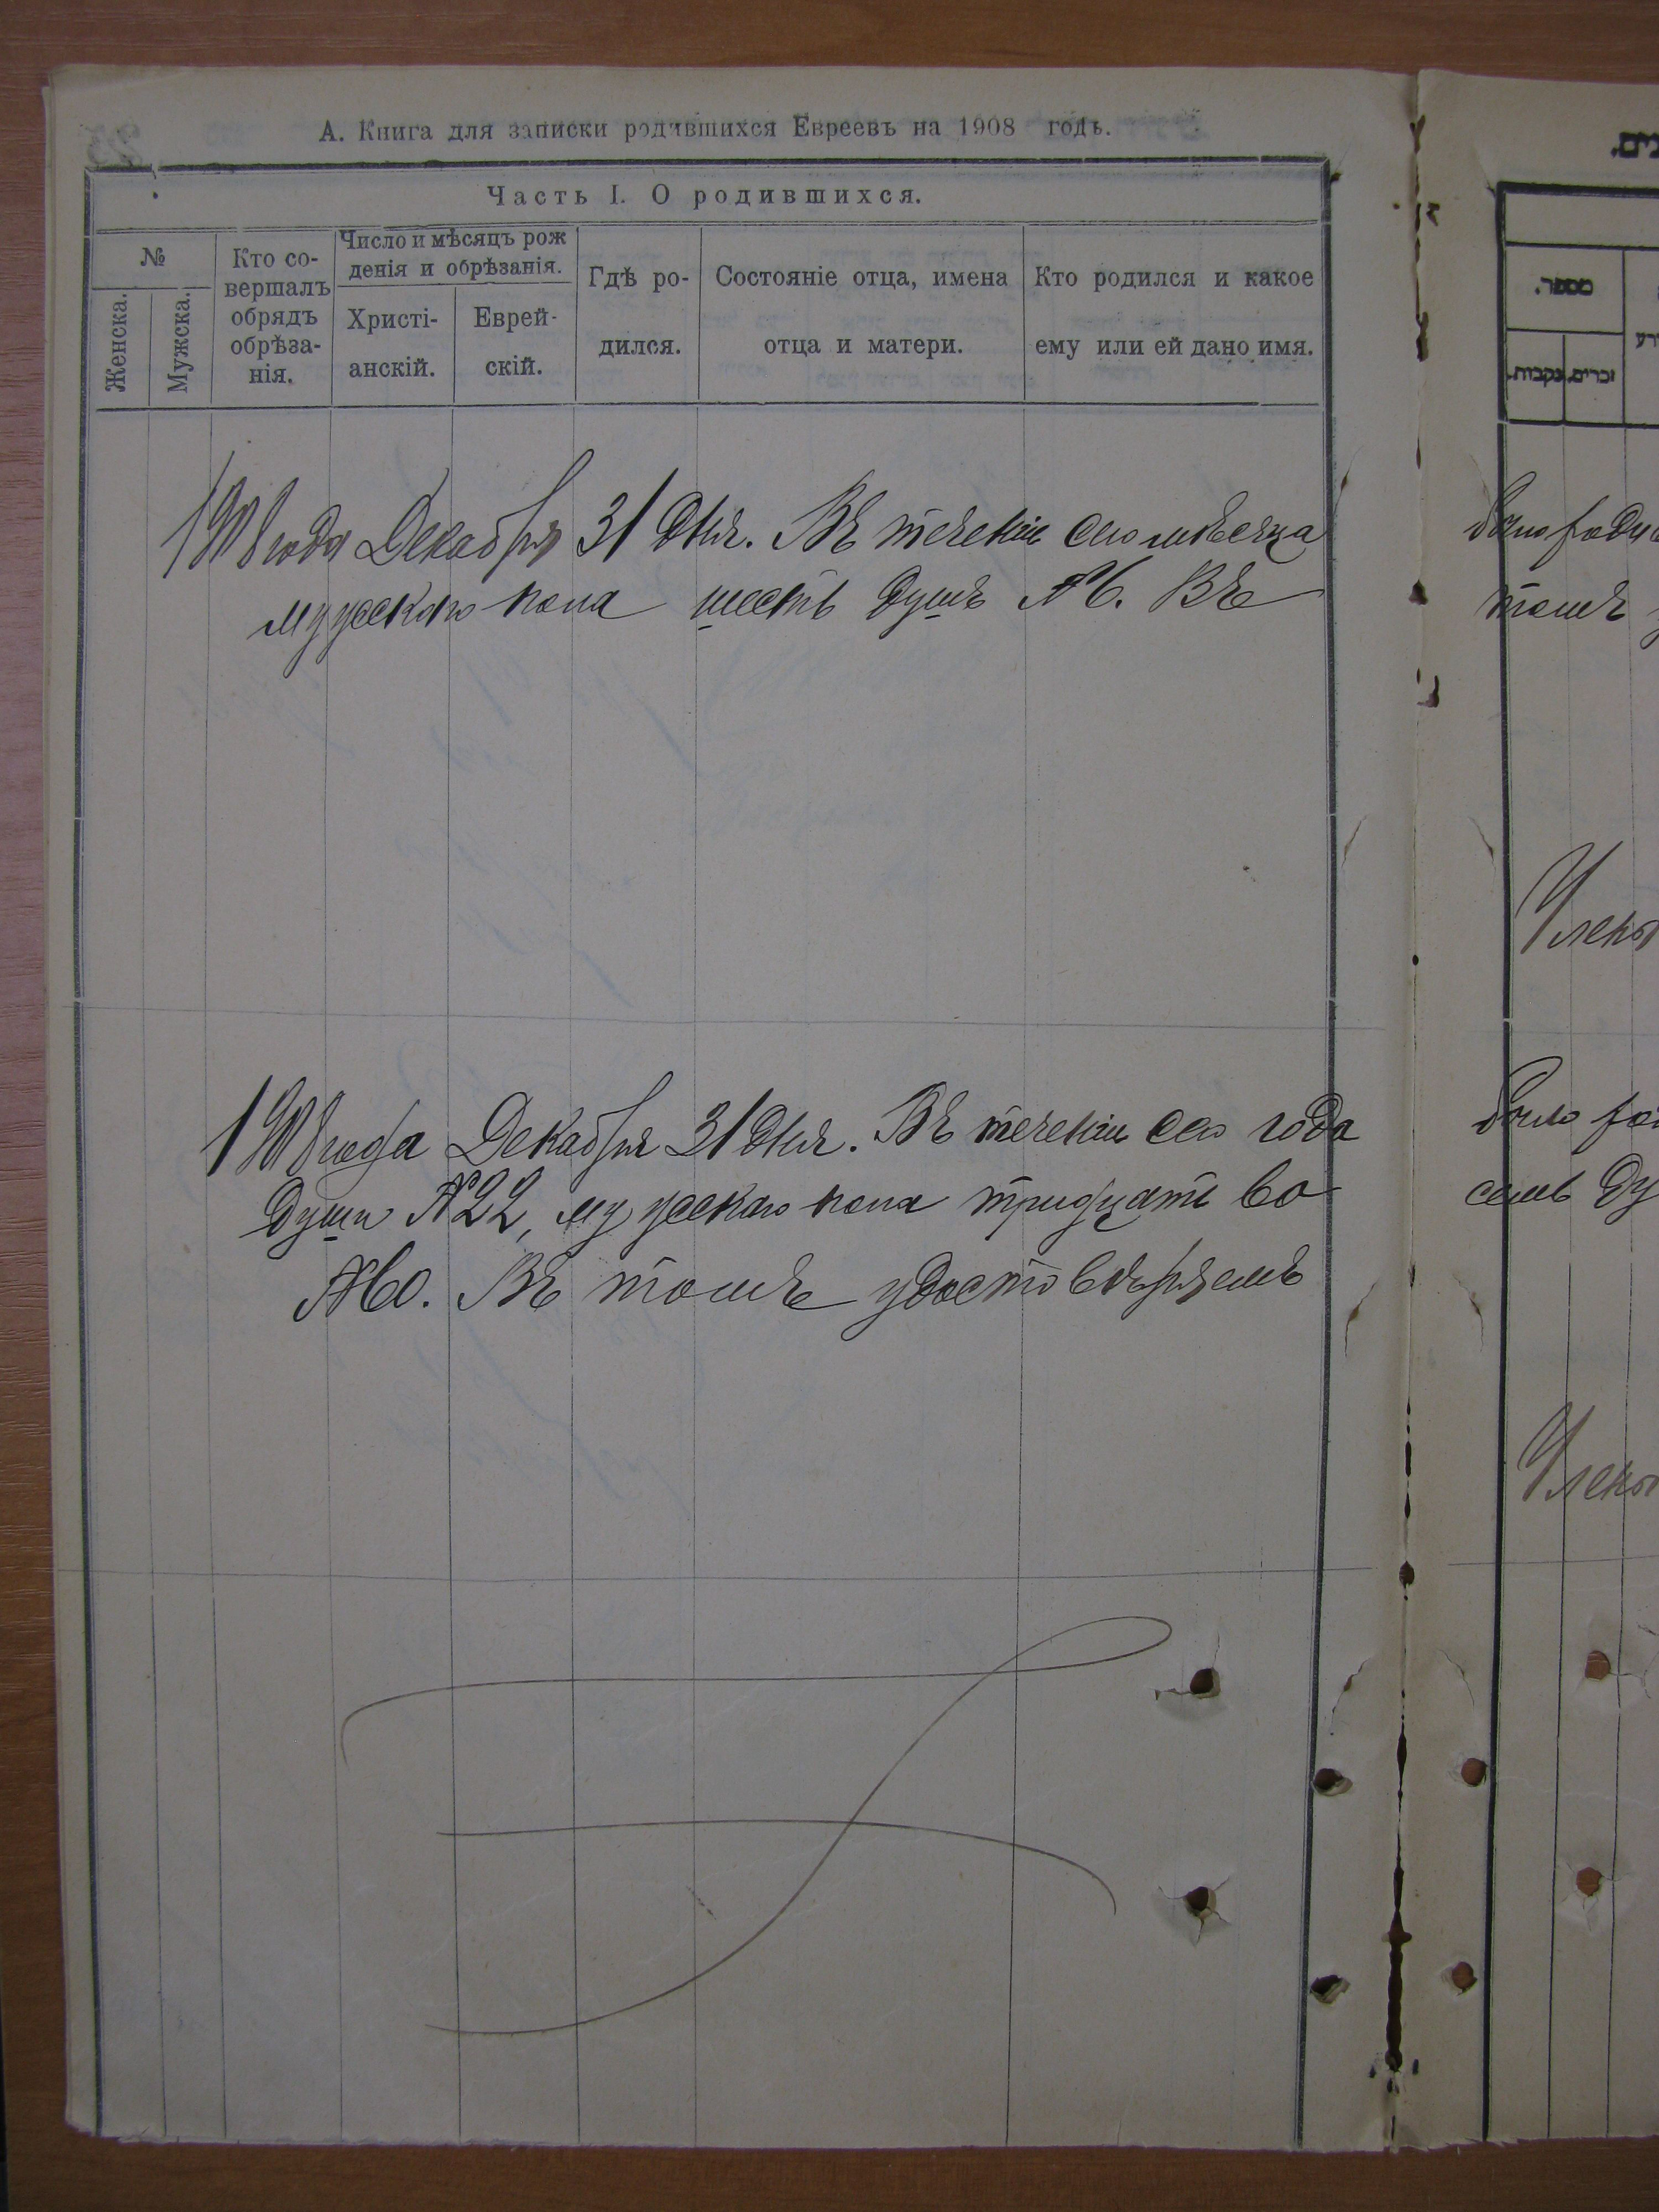 А. Книга для записки родившихся Евреевъ на 1908 годъ.
Часть I. О родившихся.
№
Женска.
Мужска.
Кто со-
вершалъ
обрядъ
обрѣза-
нія.
Число и мѣсяцъ рож
денія и обрѣзанія.
Христі-
анскій.
Еврей-
скій.
Гдѣ ро-
дился.
Состояніе отца, имена
отца и матери.
Кто родился и какое
ему или ей дано имя.
1908 года Декабря 31 дня. Въ теченіи сего мѣсяца
мужескаго пола шесть душъ №6. Въ
1908 года Декабря 31 дня. Въ теченіи сего года
души №22, мужескаго пола тридцать во
Въ томъ удостовѣряемъ
מספר.
זכרים.
נקבות.
было
томъ
Члены
было
семь ду
Члены